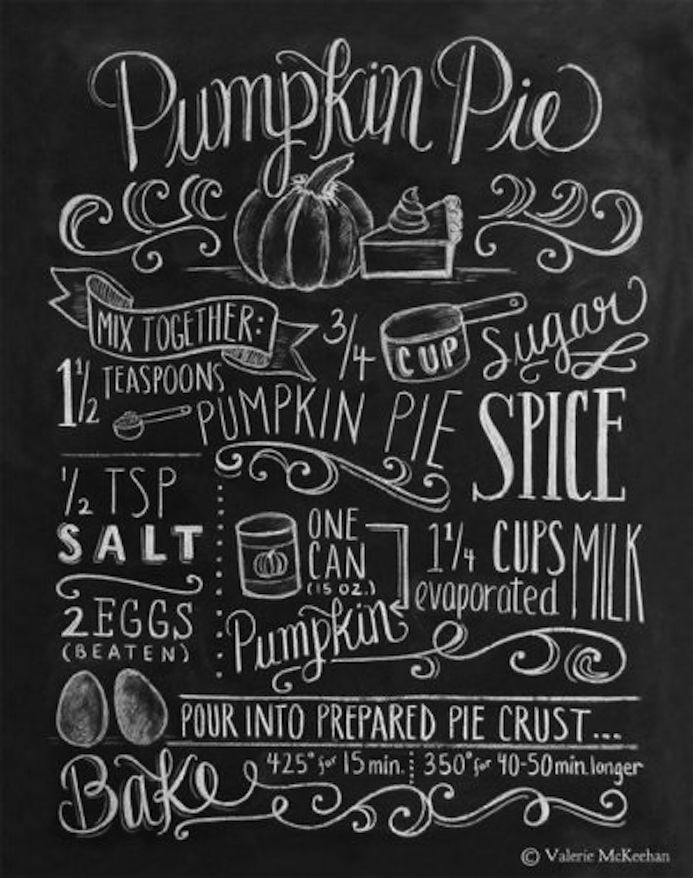 Pumpkin Pie
MIX TOGETHER:
3/4 CUP Sugar
1 1/2 TEASPOONS
PUMPKIN PIE SPICE
1/2 TSP
SALT
2 EGGS
(BEATEN)
ONE
CAN
(15 OZ.)
Pumpkin
1 1/4 CUPS
evaporated MILK
POUR INTO PREPARED PIE CRUST...
Bake 425° for 15 min. 350° for 40-50 min. longer
© Valerie McKeehan